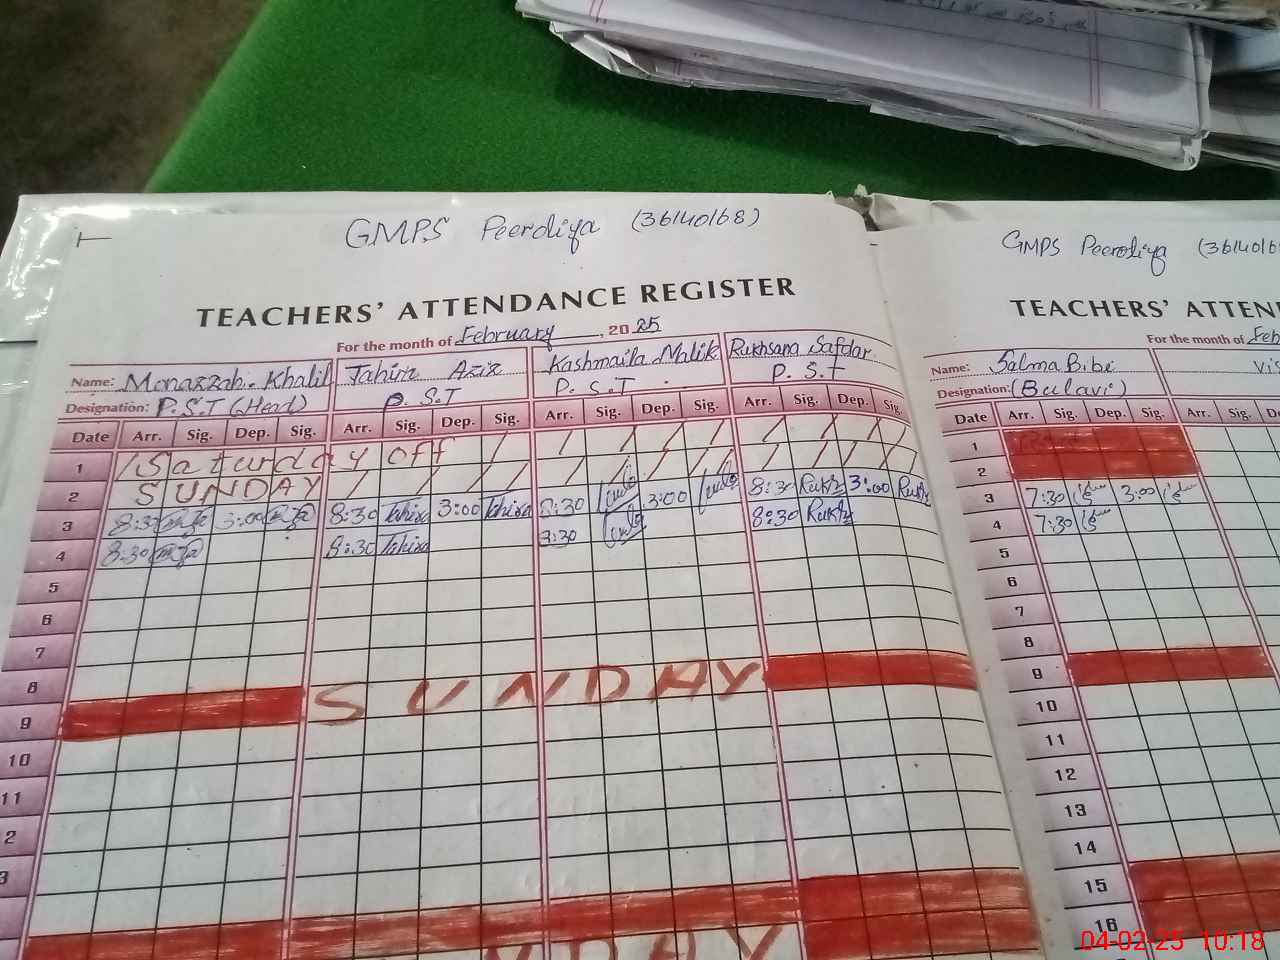 GMPS Peerdiya (36140168)
TEACHERS' ATTENDANCE REGISTER
For the month of February, 2025
Name: Monazzah Khalil Tahira Aziz Kashmaila Malik Rukhsana Safdar
Designation: P.S.T (Head) P.S.T P.S.T P.S.T
Date Arr. Sig. Dep. Sig. Arr. Sig. Dep. Sig. Arr. Sig. Dep. Sig. Arr. Sig. Dep. Sig.
1 Saturday off
2 SUNDAY
3 8:30 3:00 8:30 Tahira 3:00 Tahira 8:30 3:00 8:30 Rukhs 3:00 Rukhs
4 8:30 8:30 Tahira 8:30 8:30 Rukhs
5
6
7
8
9 SUNDAY
10
11
2
3
NDAY
GMPS Peerdiya (3614016
TEACHERS' ATTEN
For the month of Feb
Name: Salma Bibi
Designation: (Bulavi)
Date Arr. Sig. Dep. Sig. Arr. Sig. D
1
2
3 7:30 3:00
4 7:30
5
6
7
8
9
10
11
12
13
14
15
16
04-02-25 10:18